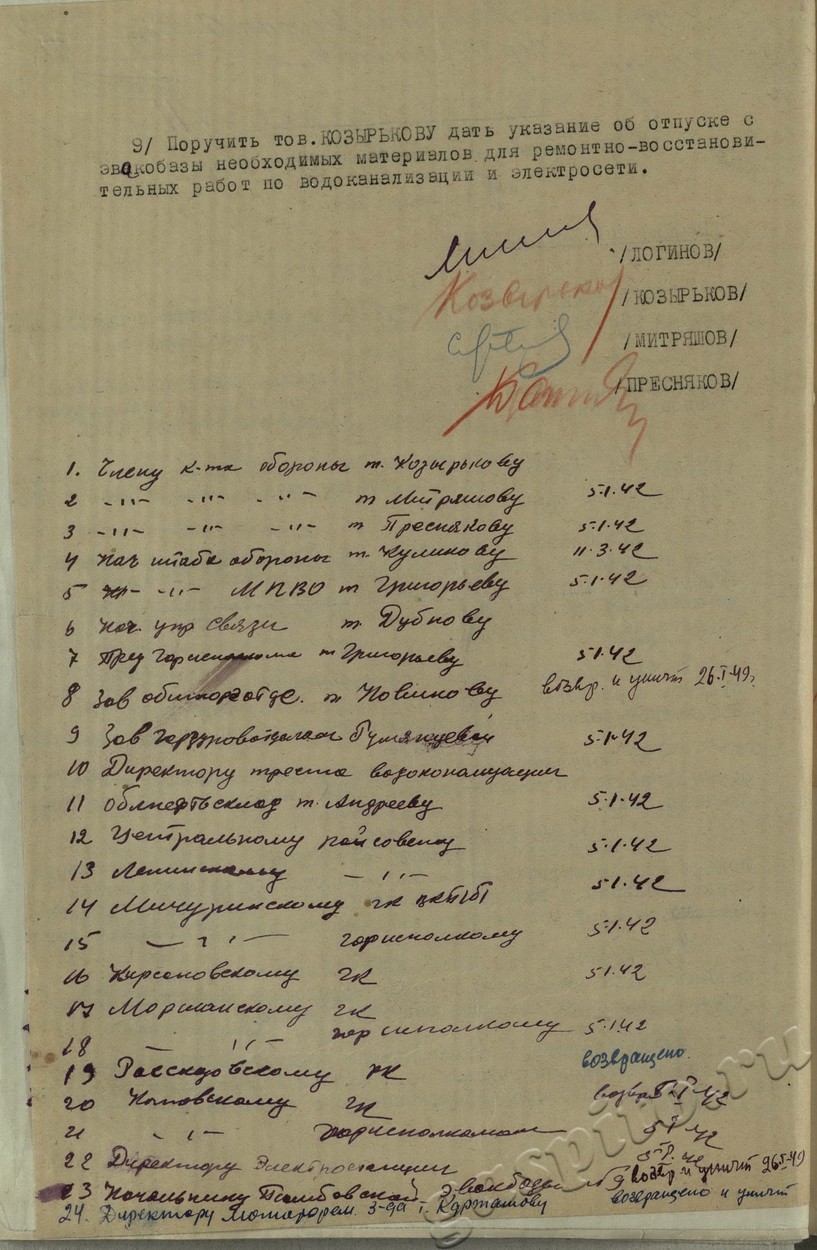 9/ Поручить тов.КОЗЫРЬКОВУ дать указание об отпуске с
эвакобазы необходимых материалов для ремонтно-восстанови-
тельных работ по водоканализации и электросети.
/ЛОГИНОВ/
Козырьков /КОЗЫРЬКОВ/
/МИТРЯШОВ/
/ПРЕСНЯКОВ/
1. Члену к-та обороны т. Козырькову
2 -"- -"- -"- т Митряшову 5.1.42
3 -"- -"- -"- т Преснякову 5.1.42
4 Нач штаба обороны т. Куликову 11.3.42
5 -"- МПВО т Григорьеву 5.1.42
6 Нач. упр связи т. Дубнову
7 Пред горисполкома т Григорьеву 5.1.42
8 Зав т возвр. и уничт 26.I.49г.
9 Зав 5.1.42
10 Директору треста водоканализации
11 Облнефтьсклад т. Андрееву 5.1.42
12 Центральному райсовету 5.1.42
13 Ленинскому -"- 5.1.42
14 Мичуринскому гк ВКП/б/
15 -"- горисполкому 5.1.42
16 Кирсановскому ГК 5.1.42
17 Моршанскому ГК
18 -"- горисполкому 5.1.42
19 Рассказовскому РК возвращено.
20 Котовскому ГК возвр 5.I.42
21 -"- горисполкому 5.I.42
22 Директору Электростанции 5.I.42
23 Начальнику Тамбовской эвакобазы №9 возвр и уничт 26.I.49
24. Директору Моторорем. з-да т. Карташову возвращено и уничт
gaspito.ru